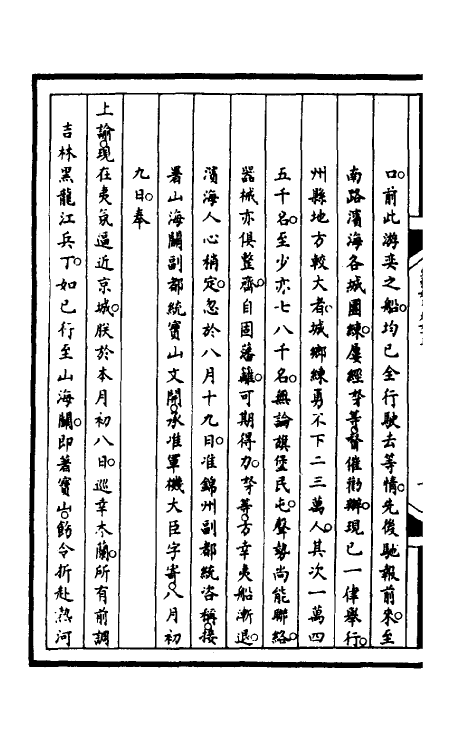 口。前此游奕之船。均已全行駛去等情。先後馳報前來。至
南路濱海各城團練。屢經奴才等督催勸辦。現已一律舉行。
州縣地方較大者。城鄉練勇不下二三萬人。其次一萬四
五千名。至少亦七八千名。無論旗堡民屯。聲勢尚能聯絡。
器械亦俱整齊。自固藩籬。可期得力。奴才等方幸夷船漸退。
濱海人心稍定。忽於八月十九日。准錦州副都統咨稱。接
署山海關副都統寶山文開。承准軍機大臣字寄。八月初
九日。奉
上諭。現在夷氛逼近京城。朕於本月初八日。巡幸木蘭。所有前調
吉林黑龍江兵丁。如已行至山海關。即著寶山飭令折赴熱河